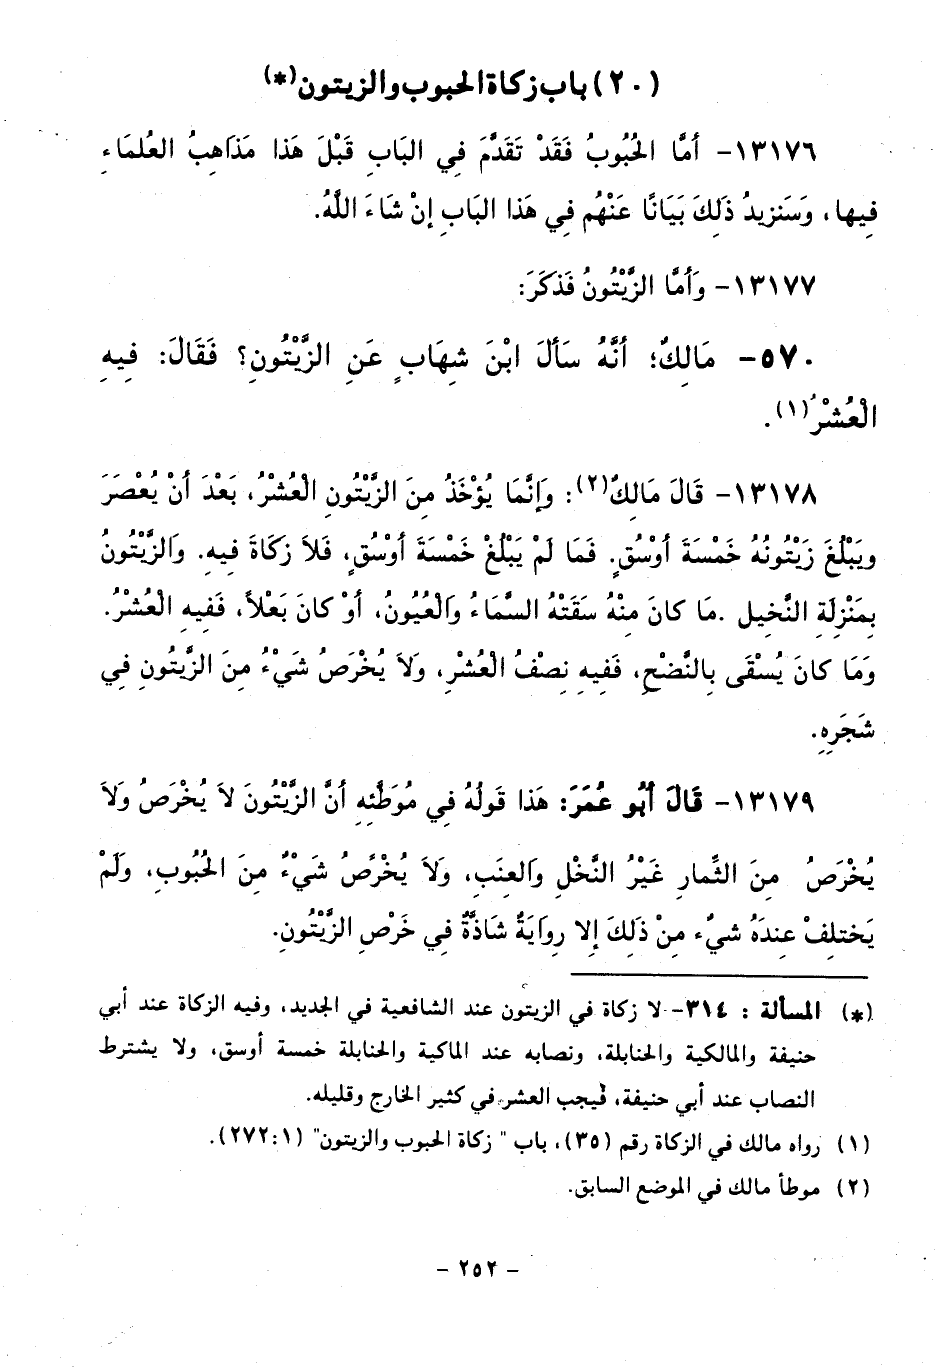 (٢٠) باب زكاة الحبوب والزيتون(*)
١٣١٧٦- أَمَّا الحُبُوبُ فَقَدْ تَقَدَّمَ فِي البَابِ قَبْلَ هَذا مَذَاهِبُ العُلمَاءِ
فِيها، وَسَنزِيدُ ذَلِكَ بَيَانًا عَنْهُم فِي هَذا البَابِ إنْ شَاءَ اللَّهُ.
١٣١٧٧- وَأَمَّا الزَّيْتُونُ فَذكَرَ:
٥٧٠- مَالِكٌ؛ أَنَّهُ سَأَلَ ابْنَ شِهَابٍ عَنِ الزَّيْتُونِ؟ فَقَالَ: فِيهِ
الْعُشْرُ(١).
١٣١٧٨- قَالَ مَالِكٌ(٢): وَإِنَّمَا يُؤْخَذُ مِنَ الزَّيْتُونِ الْعُشْرُ، بَعْدَ أَنْ يُعْصَرَ
وَيَبْلُغَ زَيْتُونُهُ خَمْسَةَ أَوْسُقٍ. فَمَا لَمْ يَبْلُغْ خَمْسَةَ أَوْسُقٍ، فَلاَ زَكَاةَ فِيهِ. وَالزَّيْتُونُ
بِمَنْزِلَةِ النَّخِيلِ .مَا كانَ مِنْهُ سَقَتْهُ السَّمَاءُ وَالْعُيُونُ، أَوْ كانَ بَعْلاً، فَفِيهِ الْعُشْرُ.
وَمَا كانَ يُسْقَى بِالنَّضْحِ، فَفِيهِ نِصْفُ الْعُشْرِ، وَلاَ يُخْرَصُ شَيْءٌ مِنَ الزَّيْتُونِ فِي
شَجَرِهِ.
١٣١٧٩- قَالَ أَبُو عُمَرَ: هَذا قَولُهُ فِي مُوَطَّئِهِ أَنَّ الزَّيْتُونَ لاَ يُخْرَصُ وَلاَ
يُخْرَصُ مِنَ الثِّمارِ غَيْرُ النَّخْلِ وَالعِنَبِ، وَلاَ يُخْرَصُ شَيْءٌ مِنَ الحُبُوبِ، وَلَمْ
يَختلِفْ عِندَهُ شيءٌ مِنْ ذَلِكَ إِلا رِوايَةٌ شَاذَّةٌ فِي خَرْصِ الزَّيْتُونِ.
(*) المسألة : ٣١٤- لا زكاة في الزيتون عند الشافعية في الجديد، وفيه الزكاة عند أبي
حنيفة والمالكية والحنابلة، ونصابه عند الماكية والحنابلة خمسة أوسق، ولا يشترط
النصاب عند أبي حنيفة، فيجب العشر في كثير الخارج وقليله.
(١) رواه مالك في الزكاة رقم (٣٥)، باب " زكاة الحبوب والزيتون" (٢٧٢:١).
(٢) موطأ مالك في الموضع السابق.
- ٢٥٢ -